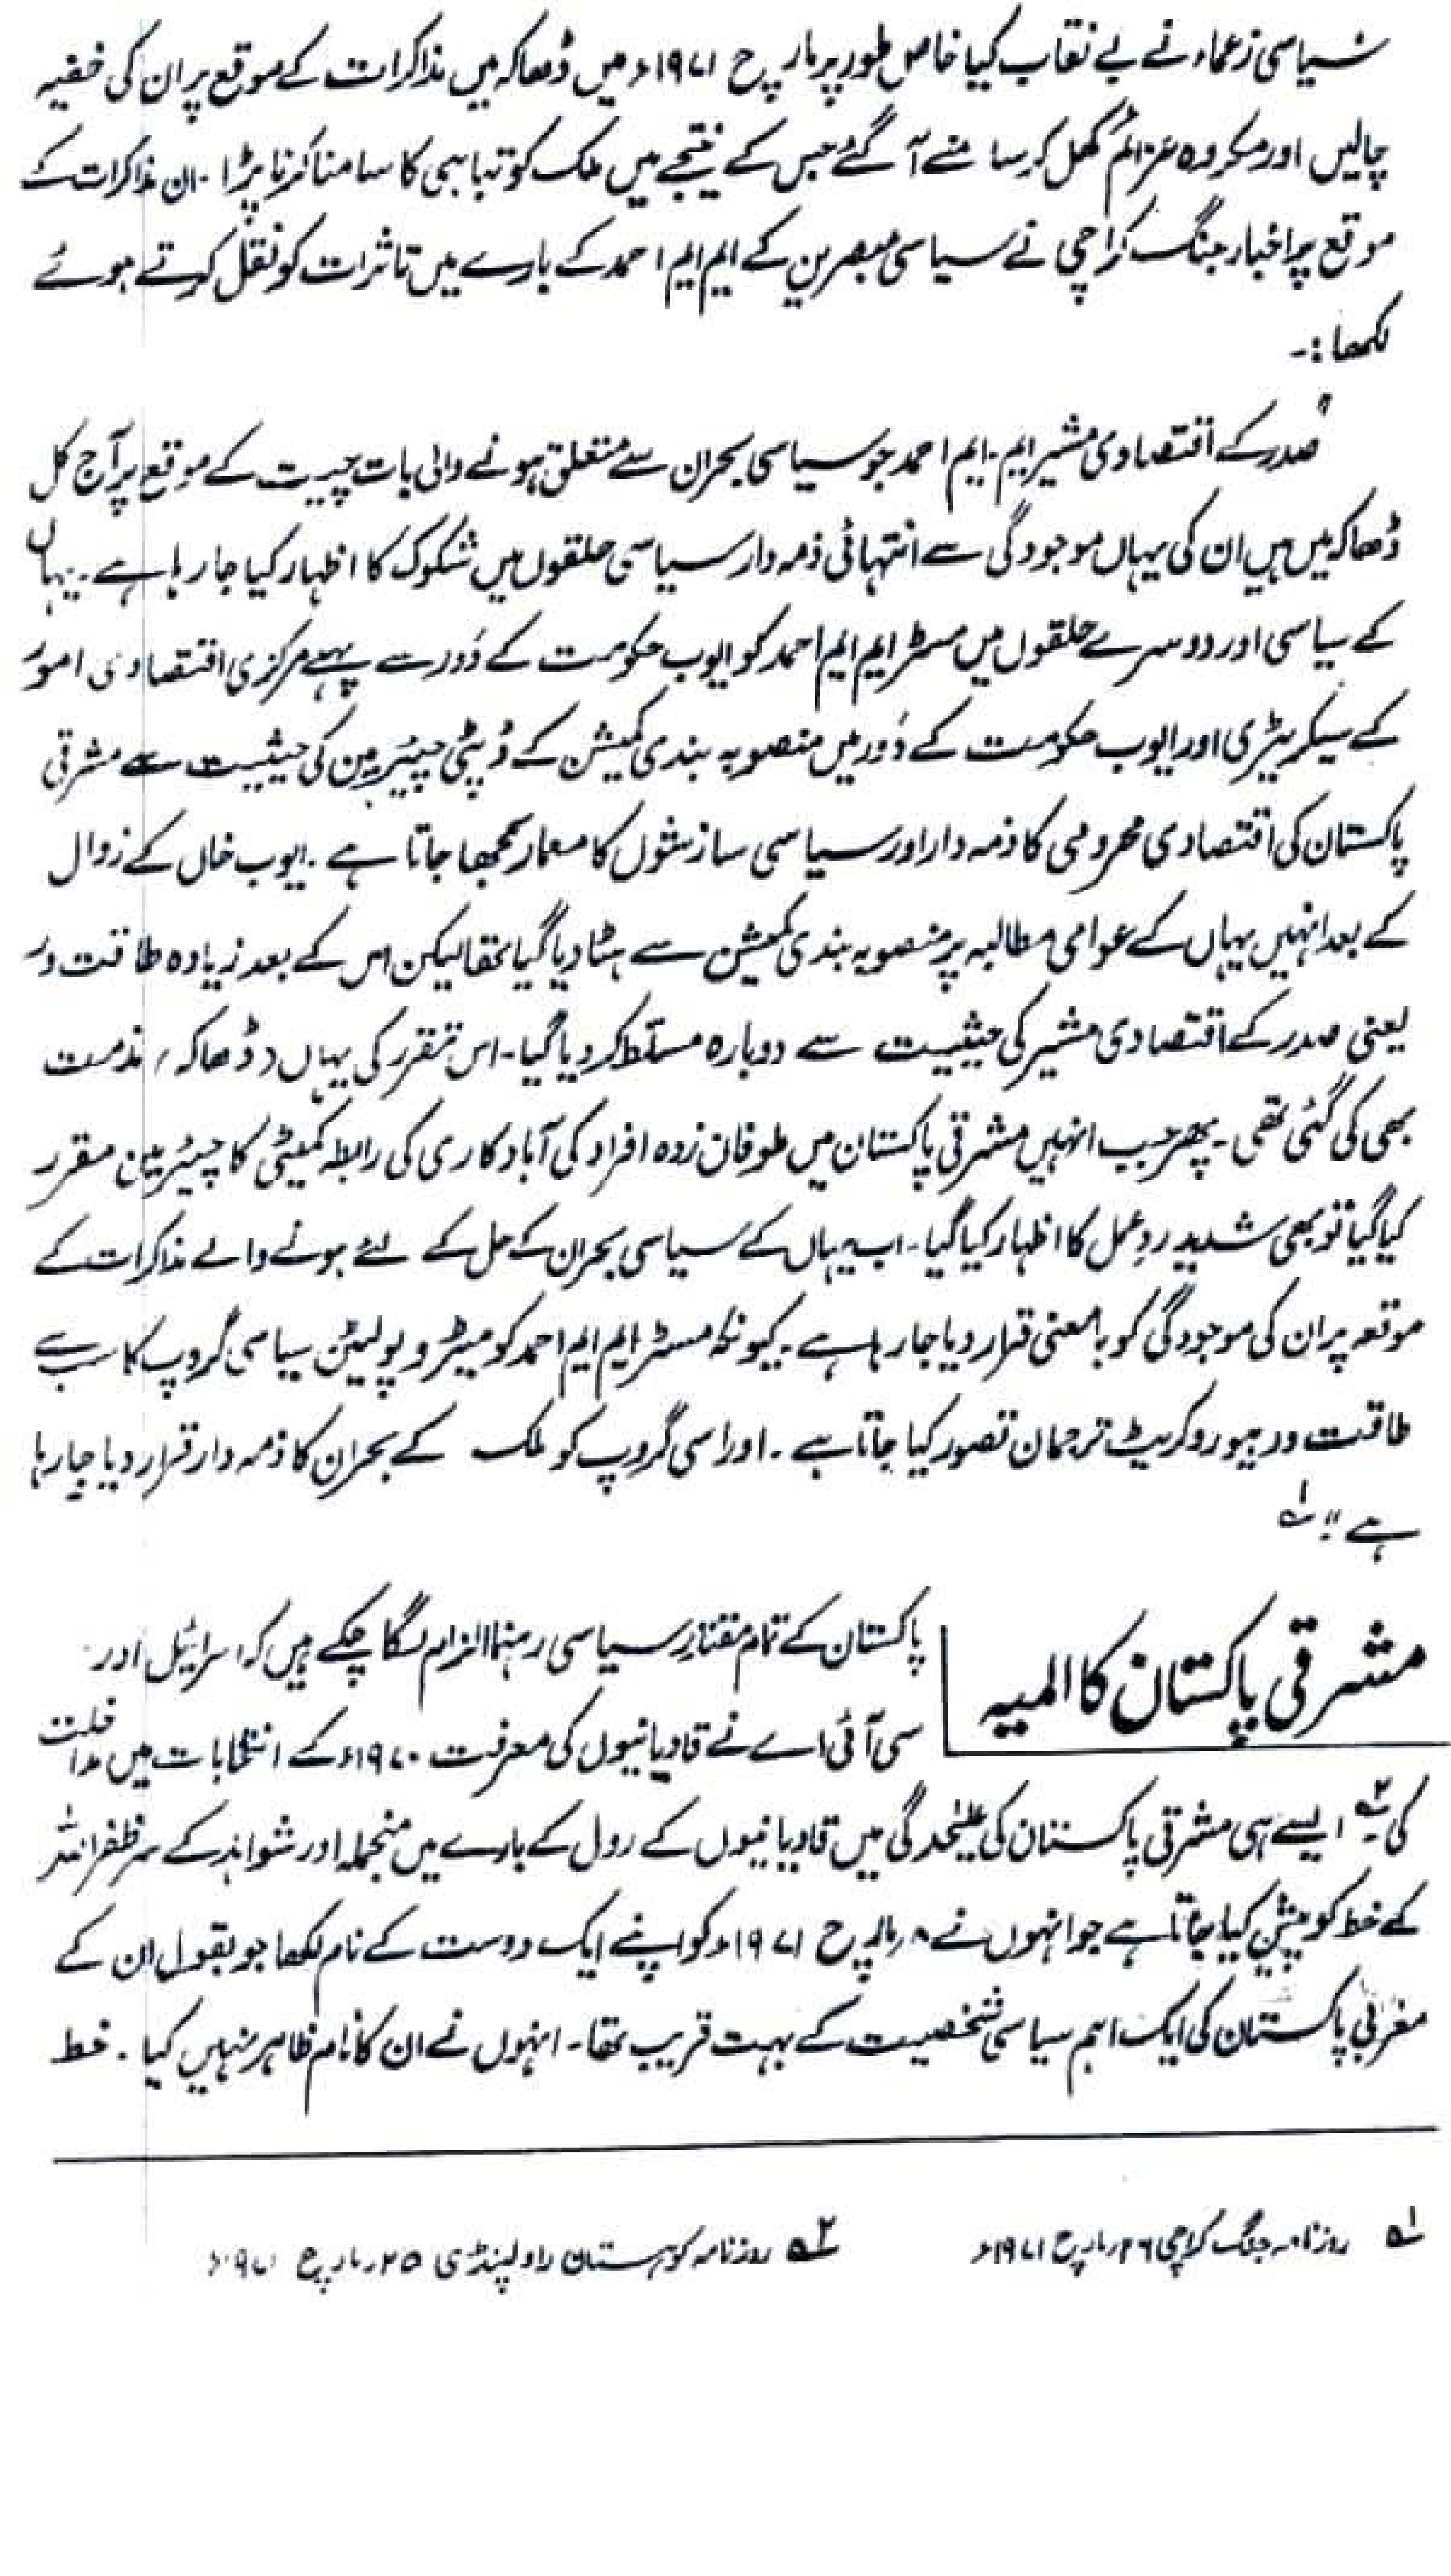 سیاسی زعماء نے بے نقاب کیا خاص طور پر مارچ ۱۹۷۱ء میں ڈھاکہ میں مذاکرات کے موقع پر ان کی خفیہ
چالیں اور مکروہ عزائم کھل کر سامنے آ گئے جس کے نتیجے میں ملک کو تباہی کا سامنا کرنا پڑا ۔ ان مذاکرات کے
موقع پر اخبار جنگ کراچی نے سیاسی مبصرین کے ایم ایم احمد کے بارے میں تاثرات کو نقل کرتے ہوئے
لکھا :-
"صدر کے اقتصادی مشیر ایم ۔ ایم احمد جو سیاسی بحران سے متعلق ہونے والی بات چیت کے موقع پر آج کل
ڈھاکہ میں ہیں ان کی یہاں موجودگی سے انتہائی ذمہ دار سیاسی حلقوں میں شکوک کا اظہار کیا جا رہا ہے ۔ یہاں
کے سیاسی اور دوسرے حلقوں میں مسٹر ایم ایم احمد کو ایوب حکومت کے دَور سے پہلے مرکزی اقتصادی امور
کے سیکریٹری اور ایوب حکومت کے دَور میں منصوبہ بندی کمیشن کے ڈپٹی چیئرمین کی حیثیت سے مشرقی
پاکستان کی اقتصادی محرومی کا ذمہ دار اور سیاسی سازشوں کا معمار سمجھا جاتا ہے ۔ ایوب خاں کے زوال
کے بعد انہیں یہاں کے عوامی مطالبہ پر منصوبہ بندی کمیشن سے ہٹا دیا گیا تھا لیکن اس کے بعد زیادہ طاقت ور
یعنی صدر کے اقتصادی مشیر کی حیثیت سے دوبارہ مسلط کر دیا گیا ۔ اس تقرر کی یہاں (ڈھاکہ) مذمت
بھی کی گئی تھی ۔ پھر جب انہیں مشرقی پاکستان میں طوفان زدہ افراد کی آباد کاری کی رابطہ کمیٹی کا چیئرمین مقرر
کیا گیا تو بھی شدید ردِ عمل کا اظہار کیا گیا ۔ اب یہاں کے سیاسی بحران کے حل کے لئے ہونے والے مذاکرات کے
موقعہ پر ان کی موجودگی کو بامعنی قرار دیا جا رہا ہے ۔ کیونکہ مسٹر ایم ایم احمد کو میٹروپولیٹن سیاسی گروپ کا سب سے
طاقت ور بیوروکریٹ ترجمان تصور کیا جاتا ہے ۔ اور اسی گروپ کو ملک کے بحران کا ذمہ دار قرار دیا جا رہا
ہے" ۱؎
مشرقی پاکستان کا المیہ
پاکستان کے تمام مقتدر سیاسی رہنما الزام لگا چکے ہیں کہ اسرائیل اور
سی آئی اے نے قادیانیوں کی معرفت ۱۹۷۰ء کے انتخابات میں مداخلت
کی ۲؎ ایسے ہی مشرقی پاکستان کی علیٰحدگی میں قادیانیوں کے رول کے بارے میں منجملہ اور شواہد کے سر ظفر اللہ
کے خط کو پیش کیا جاتا ہے جو انہوں نے ۸ر مارچ ۱۹۷۱ء کو اپنے ایک دوست کے نام لکھا جو بقول ان کے
مغربی پاکستان کی ایک اہم سیاسی شخصیت کے بہت قریب تھا ۔ انہوں نے ان کا نام ظاہر نہیں کیا ۔ خط
۱؎ روزنامہ جنگ کراچی ۲۶ر مارچ ۱۹۷۱ء
۲؎ روزنامہ کوہستان راولپنڈی ۲۵ر مارچ ۱۹۷۱ء